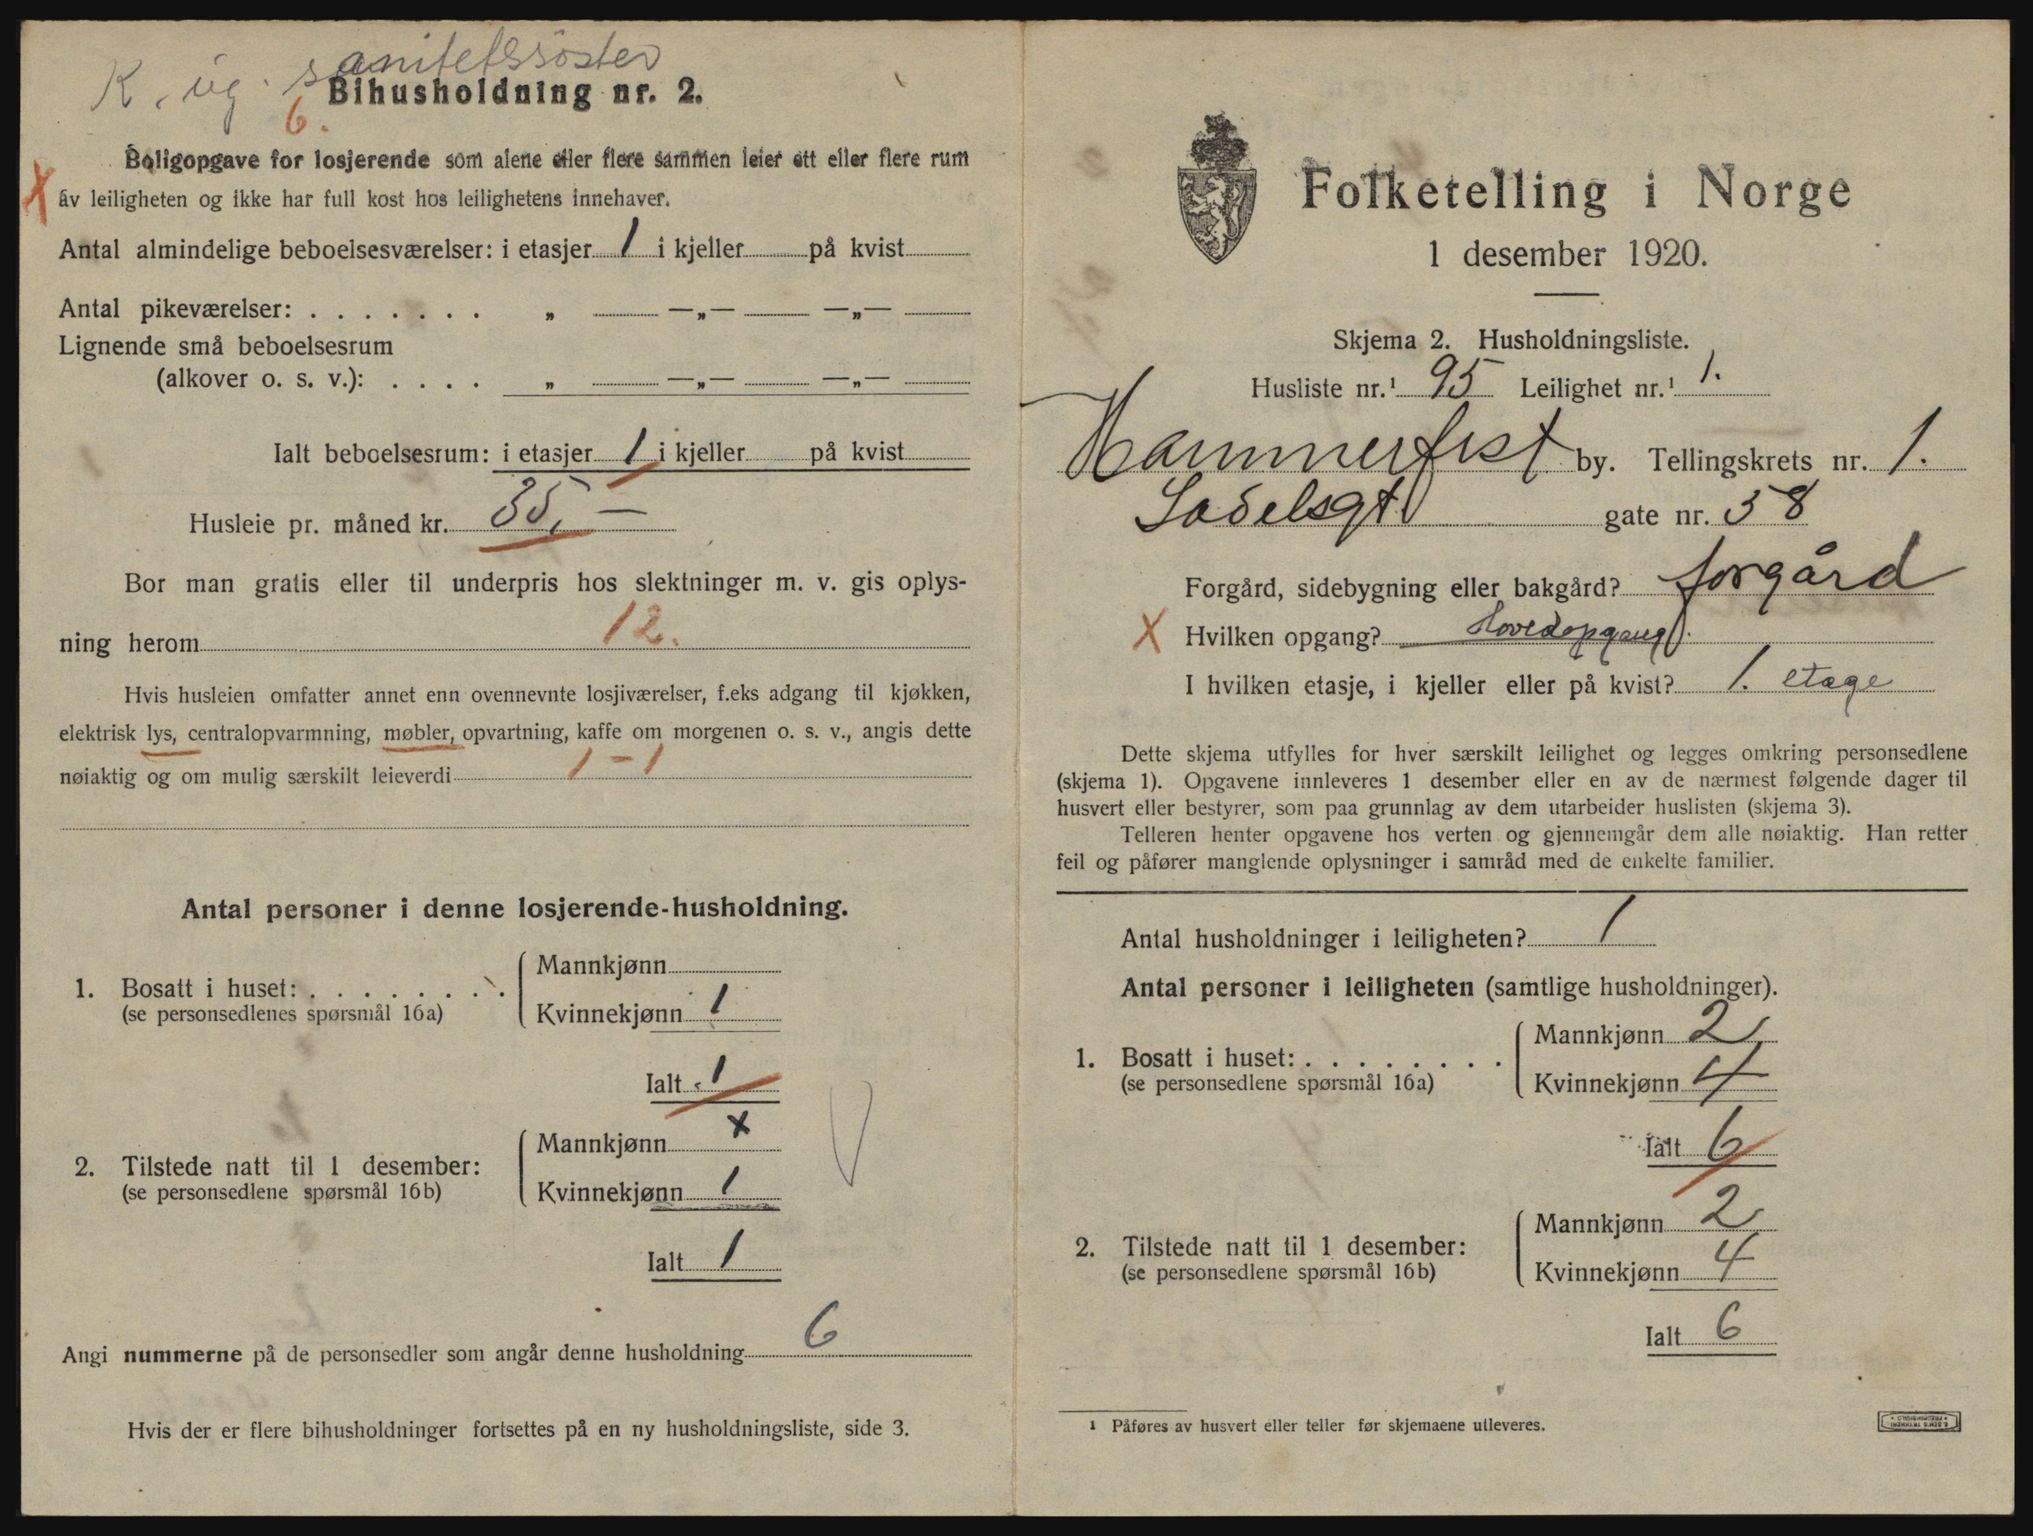 K. ug. sanitetssöster
Bihusholdning nr. 2.
6.
Boligopgave for losjerende som alene eller flere sammen leier ett eller flere rum
X av leiligheten og ikke har full kost hos leilighetens innehaver.
Antal almindelige beboelsesværelser: i etasjer 1 i kjeller på kvist
Antal pikeværelser: . . . . . . . „ —„— —„—
Lignende små beboelsesrum
(alkover o. s. v.): . . . . „ —„— —„—
Ialt beboelsesrum: i etasjer 1 i kjeller på kvist
Husleie pr. måned kr. 35,—
Bor man gratis eller til underpris hos slektninger m. v. gis oplys-
ning herom 12.
Hvis husleien omfatter annet enn ovennevnte losjiværelser, f.eks adgang til kjøkken,
elektrisk lys, centralopvarmning, møbler, opvartning, kaffe om morgenen o. s. v., angis dette
nøiaktig og om mulig særskilt leieverdi 1 – 1
Antal personer i denne losjerende-husholdning.
1. Bosatt i huset: . . . . . . . .
(se personsedlenes spørsmål 16a)
Mannkjønn
Kvinnekjønn 1
Ialt 1
2. Tilstede natt til 1 desember:
(se personsedlene spørsmål 16b)
Mannkjønn x
Kvinnekjønn 1
Ialt 1
Angi nummerne på de personsedler som angår denne husholdning 6
Hvis der er flere bihusholdninger fortsettes på en ny husholdningsliste, side 3.
Folketelling i Norge
1 desember 1920.
Skjema 2. Husholdningsliste.
Husliste nr.¹ 95 Leilighet nr.¹ 1.
Hammerfest by. Tellingskrets nr. 1.
Sadelsgt gate nr. 58
Forgård, sidebygning eller bakgård? forgård
X Hvilken opgang? Hovedopgang.
I hvilken etasje, i kjeller eller på kvist? 1. etage
Dette skjema utfylles for hver særskilt leilighet og legges omkring personsedlene
(skjema 1). Opgavene innleveres 1 desember eller en av de nærmest følgende dager til
husvert eller bestyrer, som paa grunnlag av dem utarbeider huslisten (skjema 3).
Telleren henter opgavene hos verten og gjennemgår dem alle nøiaktig. Han retter
feil og påfører manglende oplysninger i samråd med de enkelte familier.
Antal husholdninger i leiligheten? 1
Antal personer i leiligheten (samtlige husholdninger).
1. Bosatt i huset: . . . . . . . .
(se personsedlene spørsmål 16a)
Mannkjønn 2
Kvinnekjønn 4
Ialt 6
2. Tilstede natt til 1 desember:
(se personsedlene spørsmål 16b)
Mannkjønn 2
Kvinnekjønn 4
Ialt 6
¹ Påføres av husvert eller teller før skjemaene utleveres.